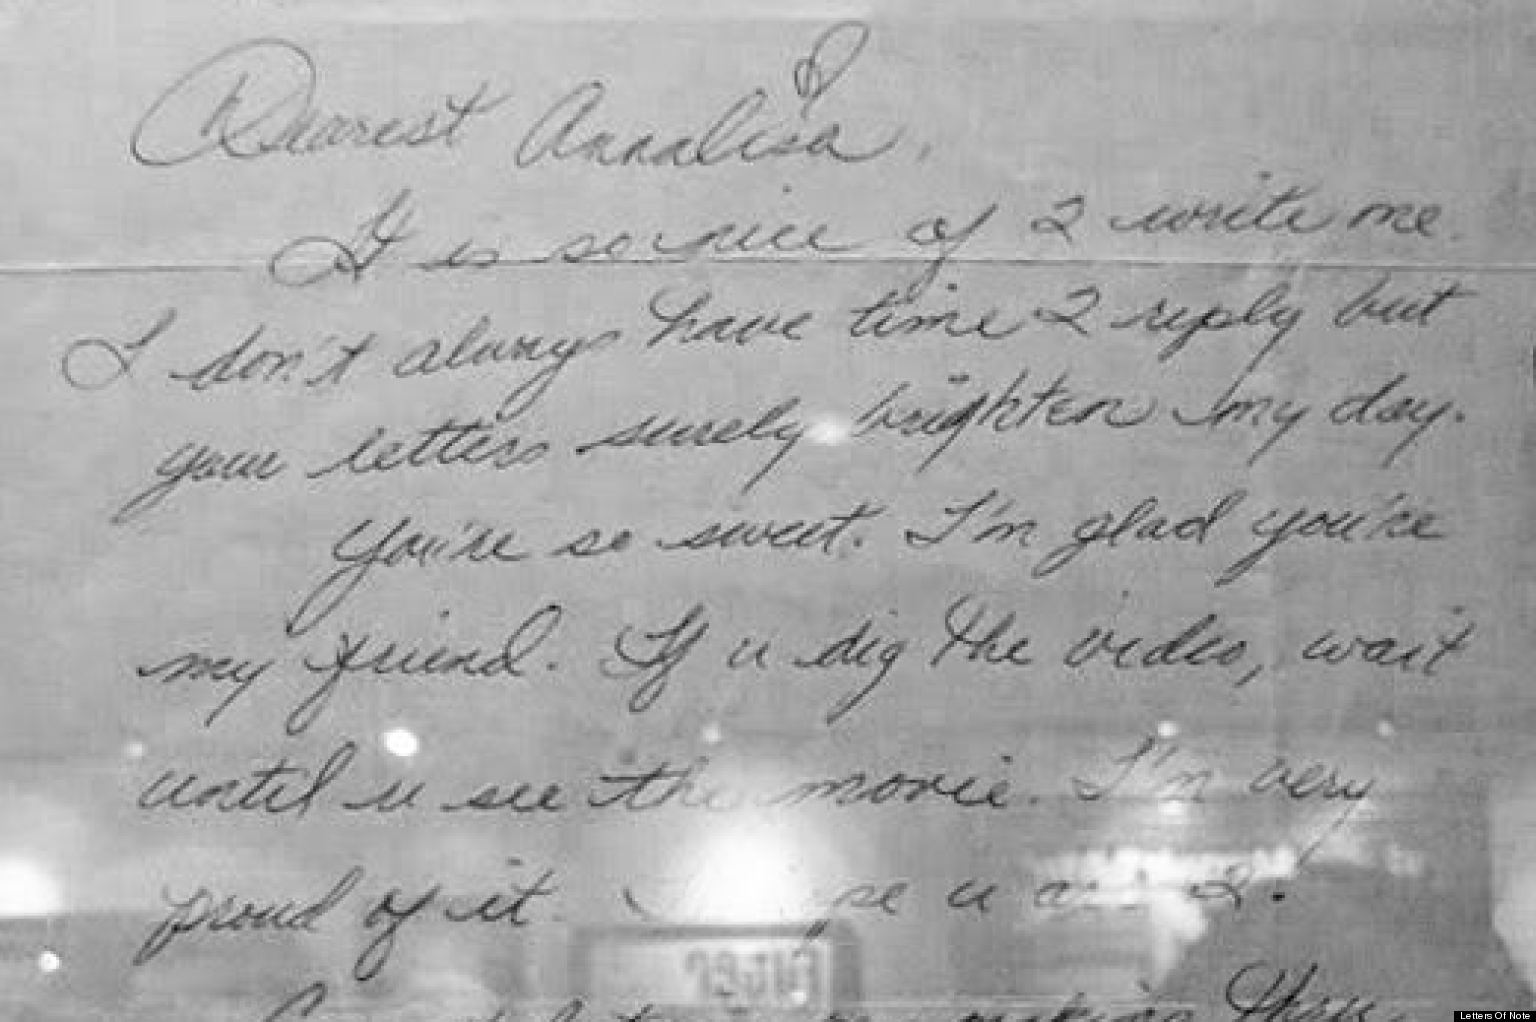 Dearest Annalisa,
It is so nice of 2 write me.
I don't always have time 2 reply but
your letters surely brighten my day.
You're so sweet. I'm glad you're
my friend. If u dig the video, wait
until u see the movie. I'm very
proud of it. u 2.
making the
Letters Of Note